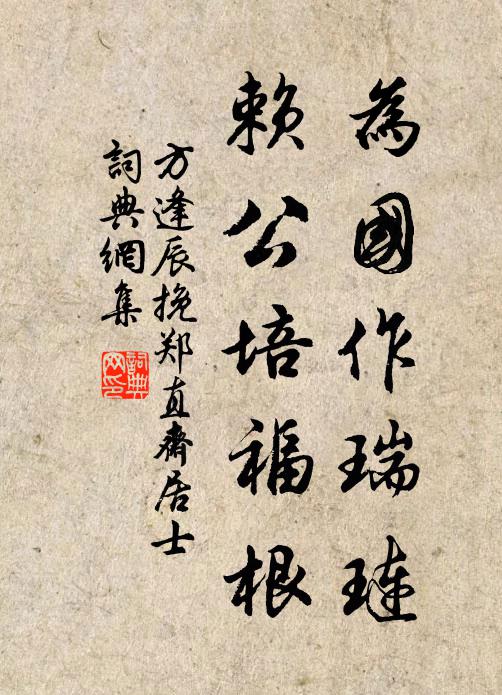 為國作瑞璉
賴公培福根
方逢辰挽郑直齋居士
詞典網集
詞典
网印